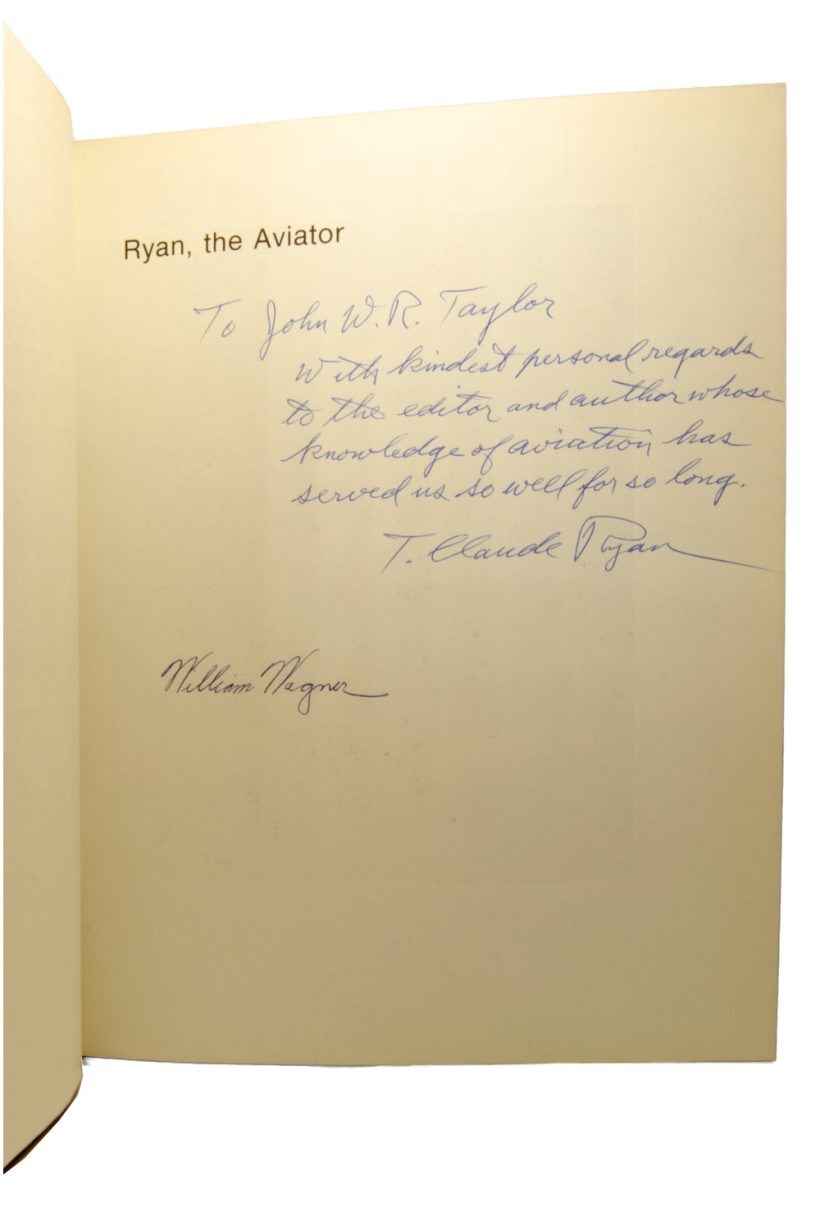 Ryan, the Aviator
To John W. R. Taylor
With kindest personal regards
to the editor and author whose
knowledge of aviation has
served us so well for so long.
T. Claude Ryan
William Wagner